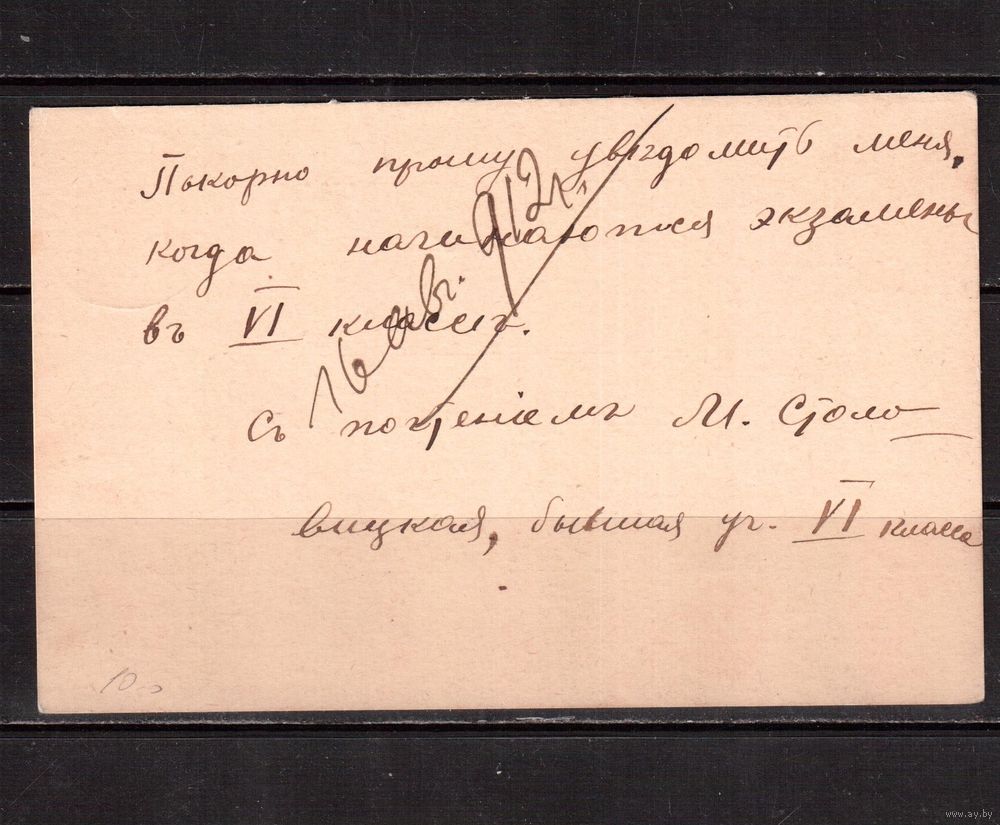 Покорно прошу увѣдомить меня,
когда начинаются экзамены
въ VI классѣ.
Съ почтеніемъ М. Столо-
вицкая, бывшая уч. VI класса
10-
www.ay.by